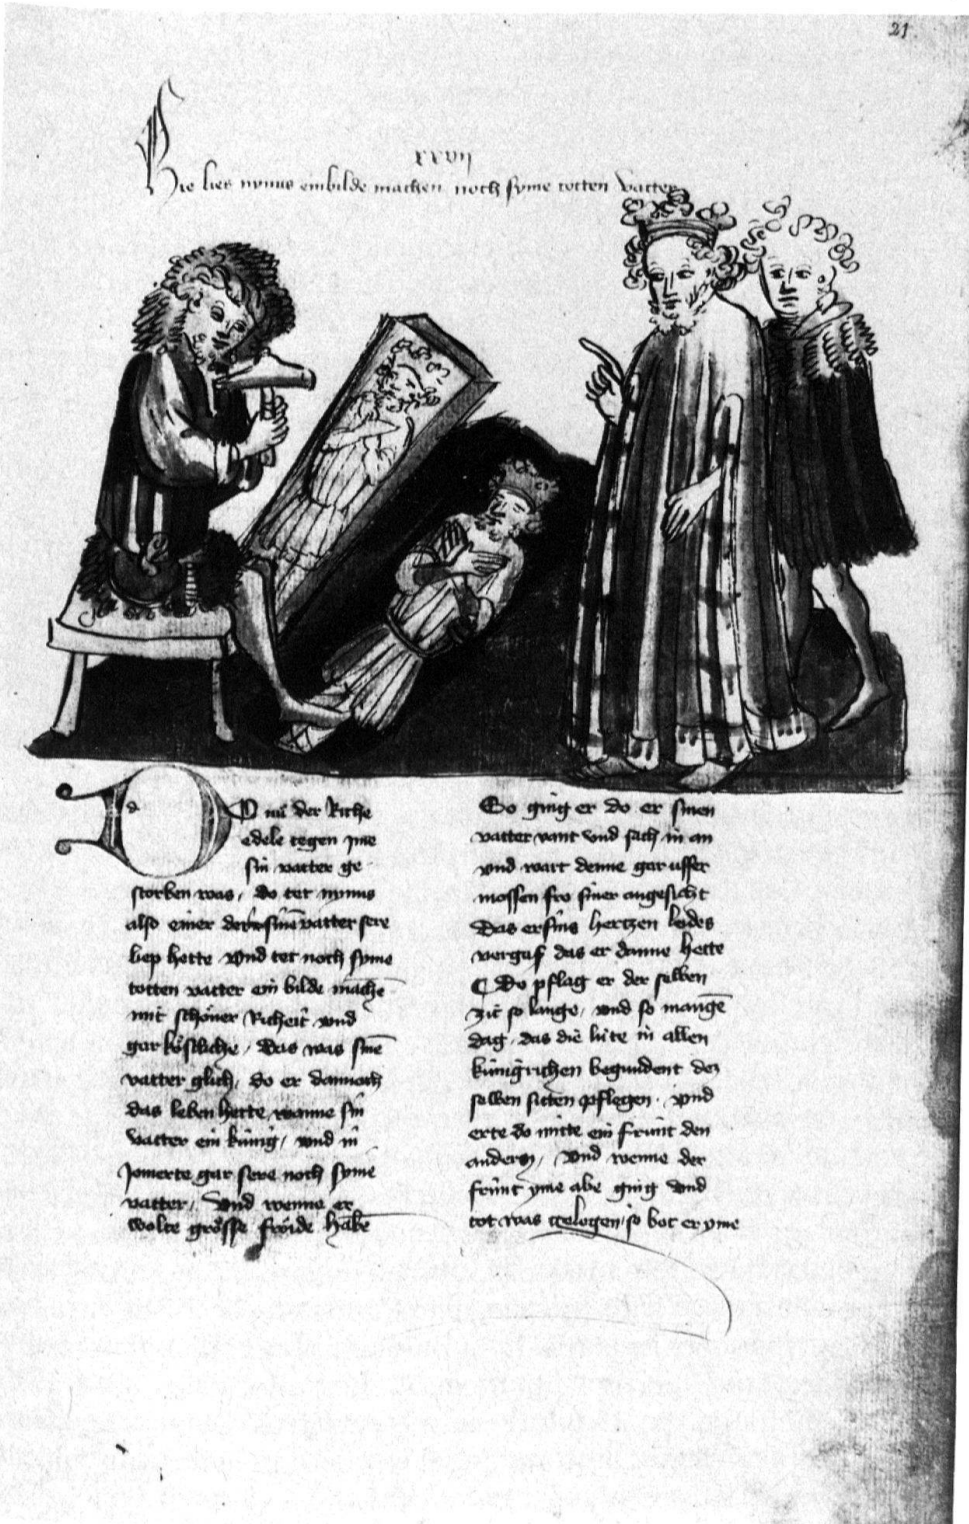 21
xxvij
Hie lies nynus ein bilde machen noch syme totten vatter
DO nū der Riche
edele tegen jme
sin vatter ge
storben was / do tet nynus
also einer der sinē vatter sere
liep hette vnd tet noch syme
totten vatter ein bilde machē
mit schöner Richeit vnd
gar köstliche / Das was sinē
vatter glich / do er dannoch
das leben hette wanne sin
vatter ein künig / vnd in
Jomerte gar sere noch syme
vatter / Vnd wenne er
wolte grösse fröide habē
So ging er do er sinen
vatter vant vnd sach in an
vnd wart denne gar usser
mossen fro siner angesicht
Das er sins hertzen leides
vergas das er danne hette
Do pflag er der selben
zit so lange / vnd so mangē
dag / das die lüte in allen
künigrichen begundent des
selben sitten pflegen / vnd
erte do mitte ein frünt den
andern / Vnd wenne der
frünt yme abe ging vnd
tot was gelogen / so bot er yme